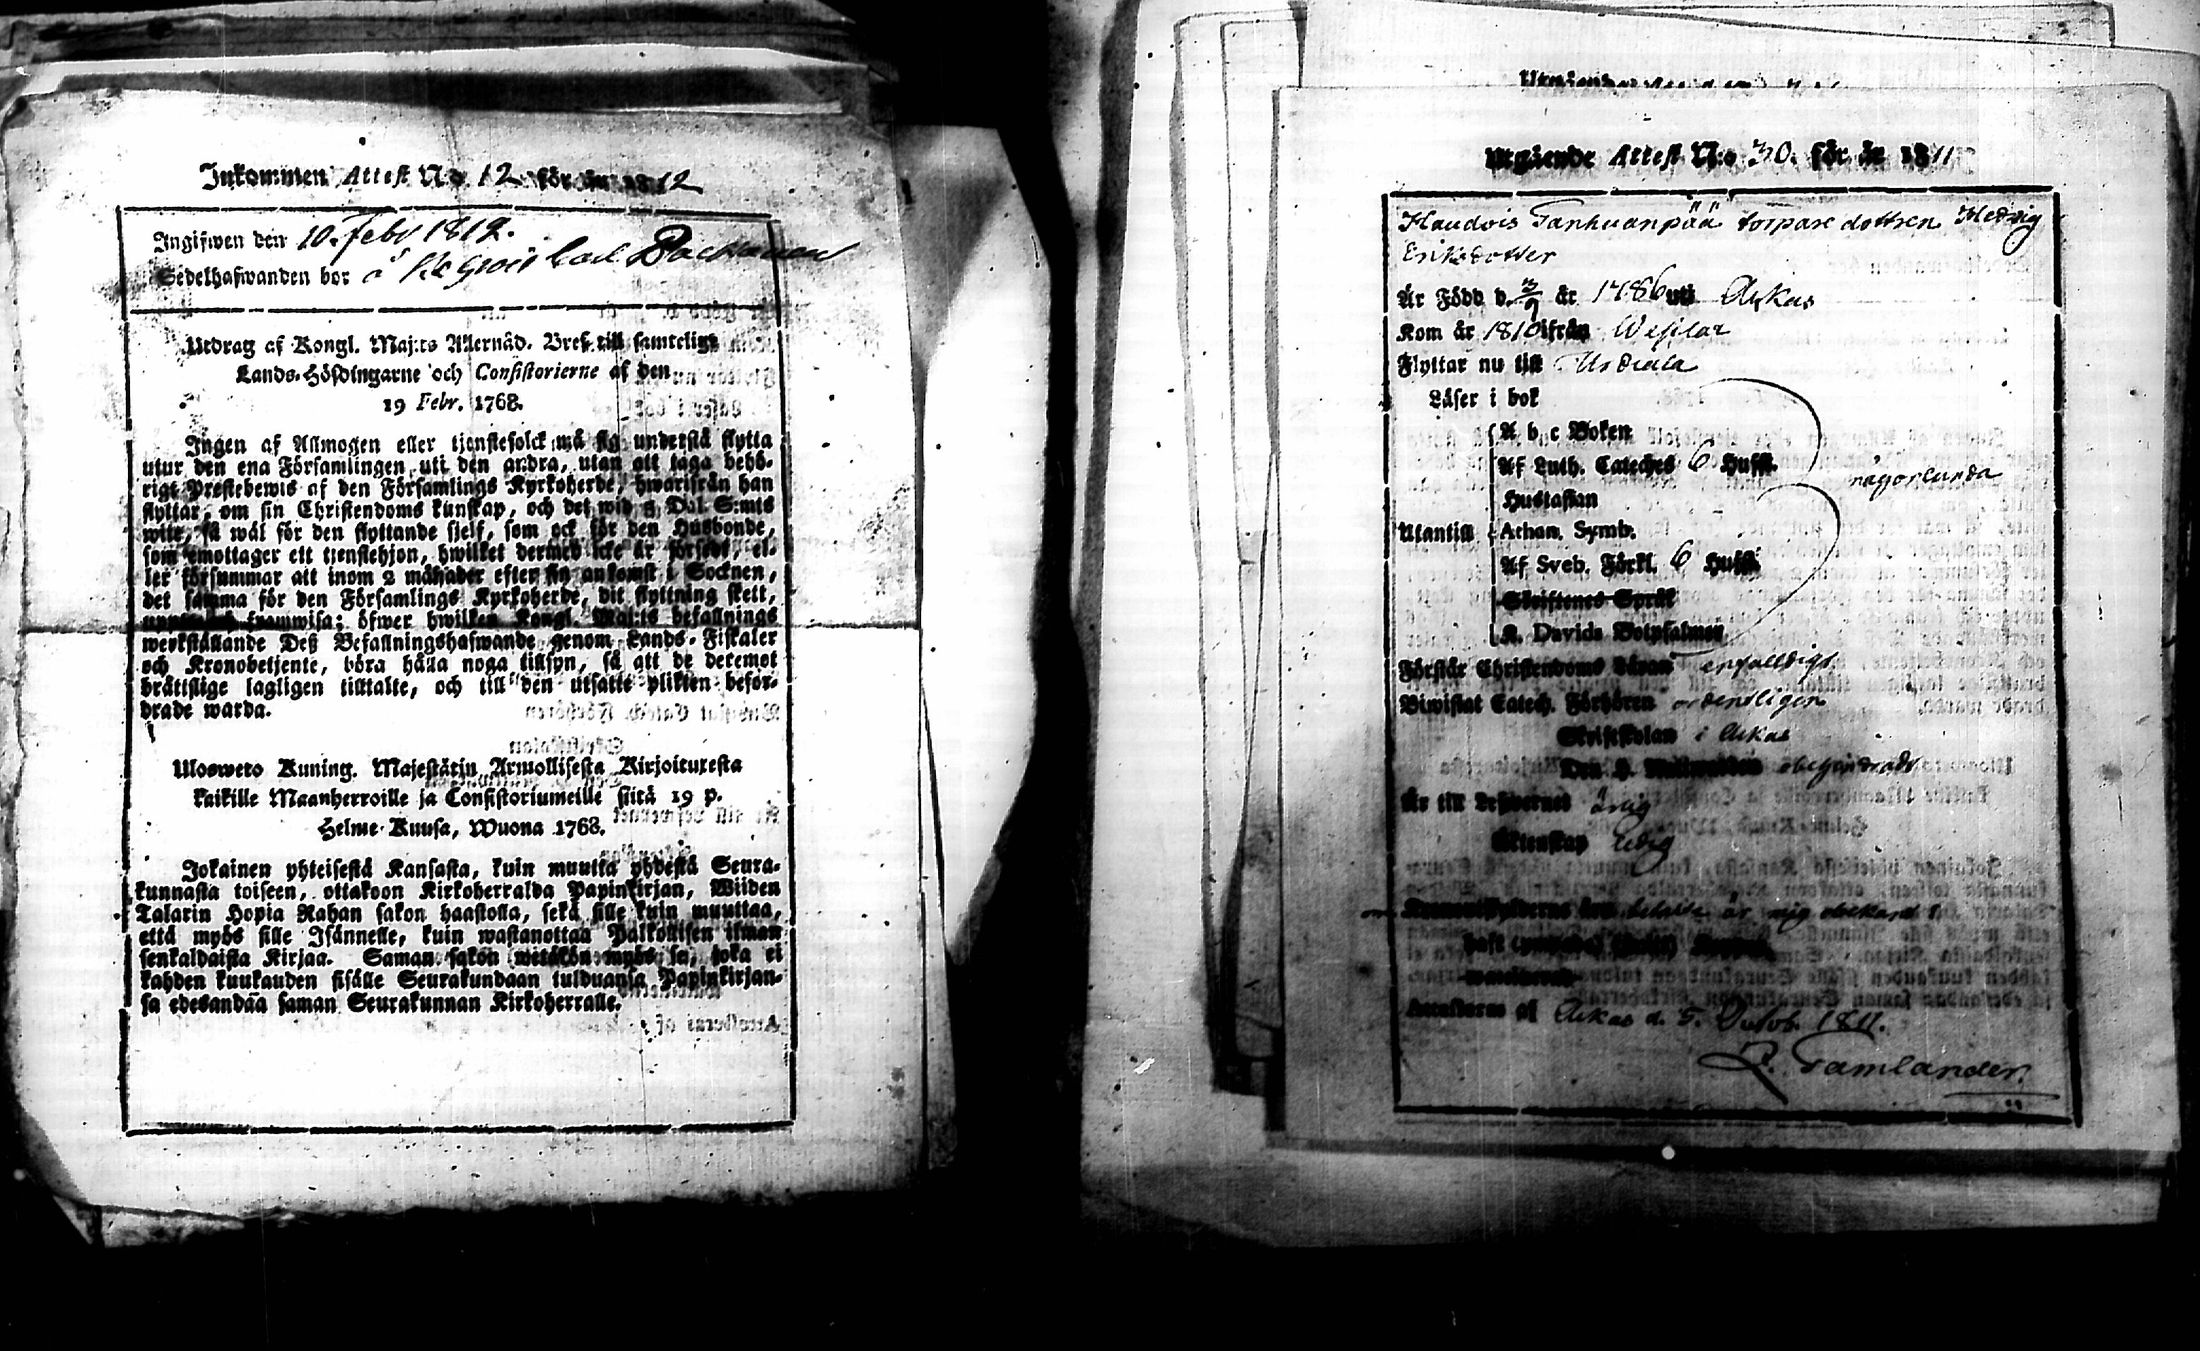 Inkommen Attest No 12 för år 1812
Ingifwen den 10. Febr 1812.
Sedelhafwanden bor å
Utdrag af Kongl. Maj:ts Allernåd. Bref till samtelige
Lands-Höfdingarne och Consistorierne af den
19 Febr. 1768.
Ingen af Allmogen eller tjenstefolck må sig understå flytta
utur den ena Församlingen uti den andra, utan att taga behö-
rigt Prestebewis af den Församlings Kyrkoherde, hwarifrån han
flyttar, om sin Christendoms kunskap, och det wid 5 Dal. S:mts
wite, så wäl för den flyttande sjelf, som ock för den Husbonde,
som emottager ett tjenstehjon, hwilket dermed icke är försedt, el-
ler försummar att inom 2 månader efter sin ankomst i Socknen,
det samma för den Församlings Kyrkoherde, dit flyttning skett,
framwisa; öfwer hwilken Kongl. Maj:ts befallnings
werkställande Deß Befallningshafwande genom Lands-Fiskaler
och Kronobetjente, böra hålla noga tillsyn, så att de deremot
bråttslige lagligen tilltalte, och till den utsatte plikten befor-
drade warda.
Ulosweto Kuning. Majestätin Armollisesta Kirjoituxesta
kaikille Maanherroille ja Consistoriumeille siitä 19 p.
Helme-Kuusa, Wuona 1768.
Jokainen yhteisestä Kansasta, kuin muutta yhdestä Seura-
kunnasta toiseen, ottakoon Kirkoherralda Papinkirjan, Wiiden
Talarin Hopia Rahan sakon haastolla, sekä sille kuin muuttaa,
että myös sille Isännelle, kuin wastanottaa Palkollisen ilman
senkaldaista Kirjaa. Saman sakon wetäkön myös se, joka ei
kahden kuukauden sisälle Seurakundaan tulduansa Papinkirjan-
sa edesandaa saman Seurakunnan Kirkoherralle.
Utgående Attest N:o 30. för år 1811
Haudois Tanhuanpää torpare dottren Hedvig
Eriksdotter
Är Född d. 3/9 år 1786 uti Ackas
Kom år 1810 ifrån Wesilax
Flyttar nu till Urdiala
Läser i bok
A b c Boken
Af Luth. Cateches 6 Hufst.
någorlunda
Hustaflan
Utantill Athan. Symb.
Af Sveb. Förkl. 6 Hufst.
Skriftenes Språk
K. Davids Botpsalmer
Förstår Christendoms Läran enfalldigt
Biwistat Catech. Förhören ordentligen
Skriftskolan i Ackas
Den H. Nattwarden obehindradt
Är till Lefwernet ärlig
Äktenskap ledig
är mig obekandt
Attesteras af Ackas d. 5. Octob. 1811.
P. Tamlander.